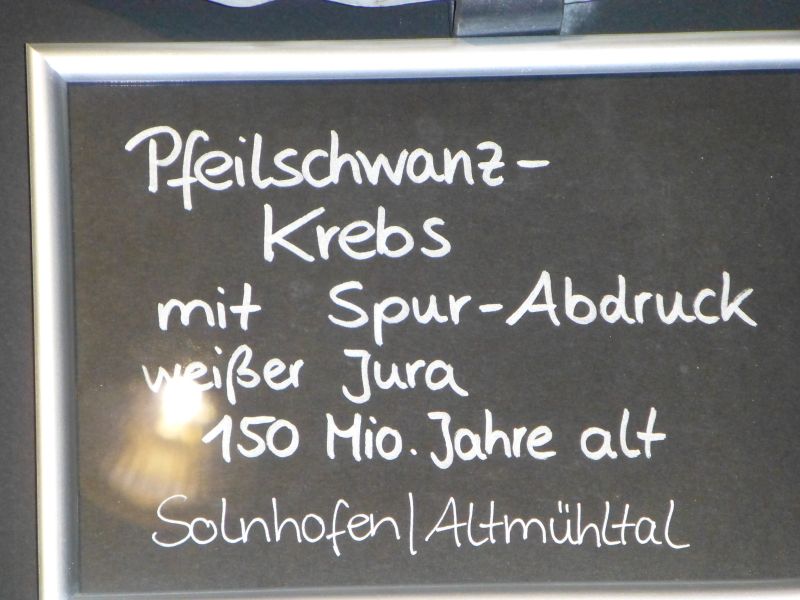 Pfeilschwanz-
Krebs
mit Spur-Abdruck
weißer Jura
150 Mio. Jahre alt
Solnhofen/Altmühltal